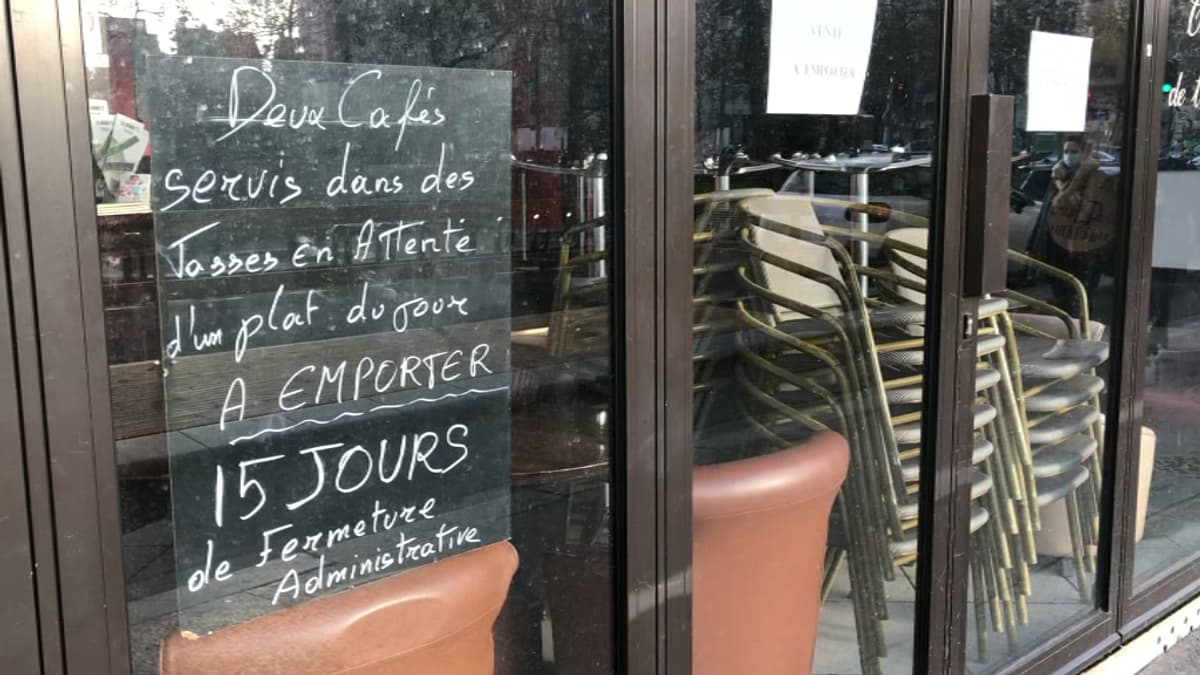 Deux Cafés
servis dans des
Tasses en Attente
d'un plat du jour
A EMPORTER
15 JOURS
de Fermeture
Administrative
VENTE
A EMPORTER
de